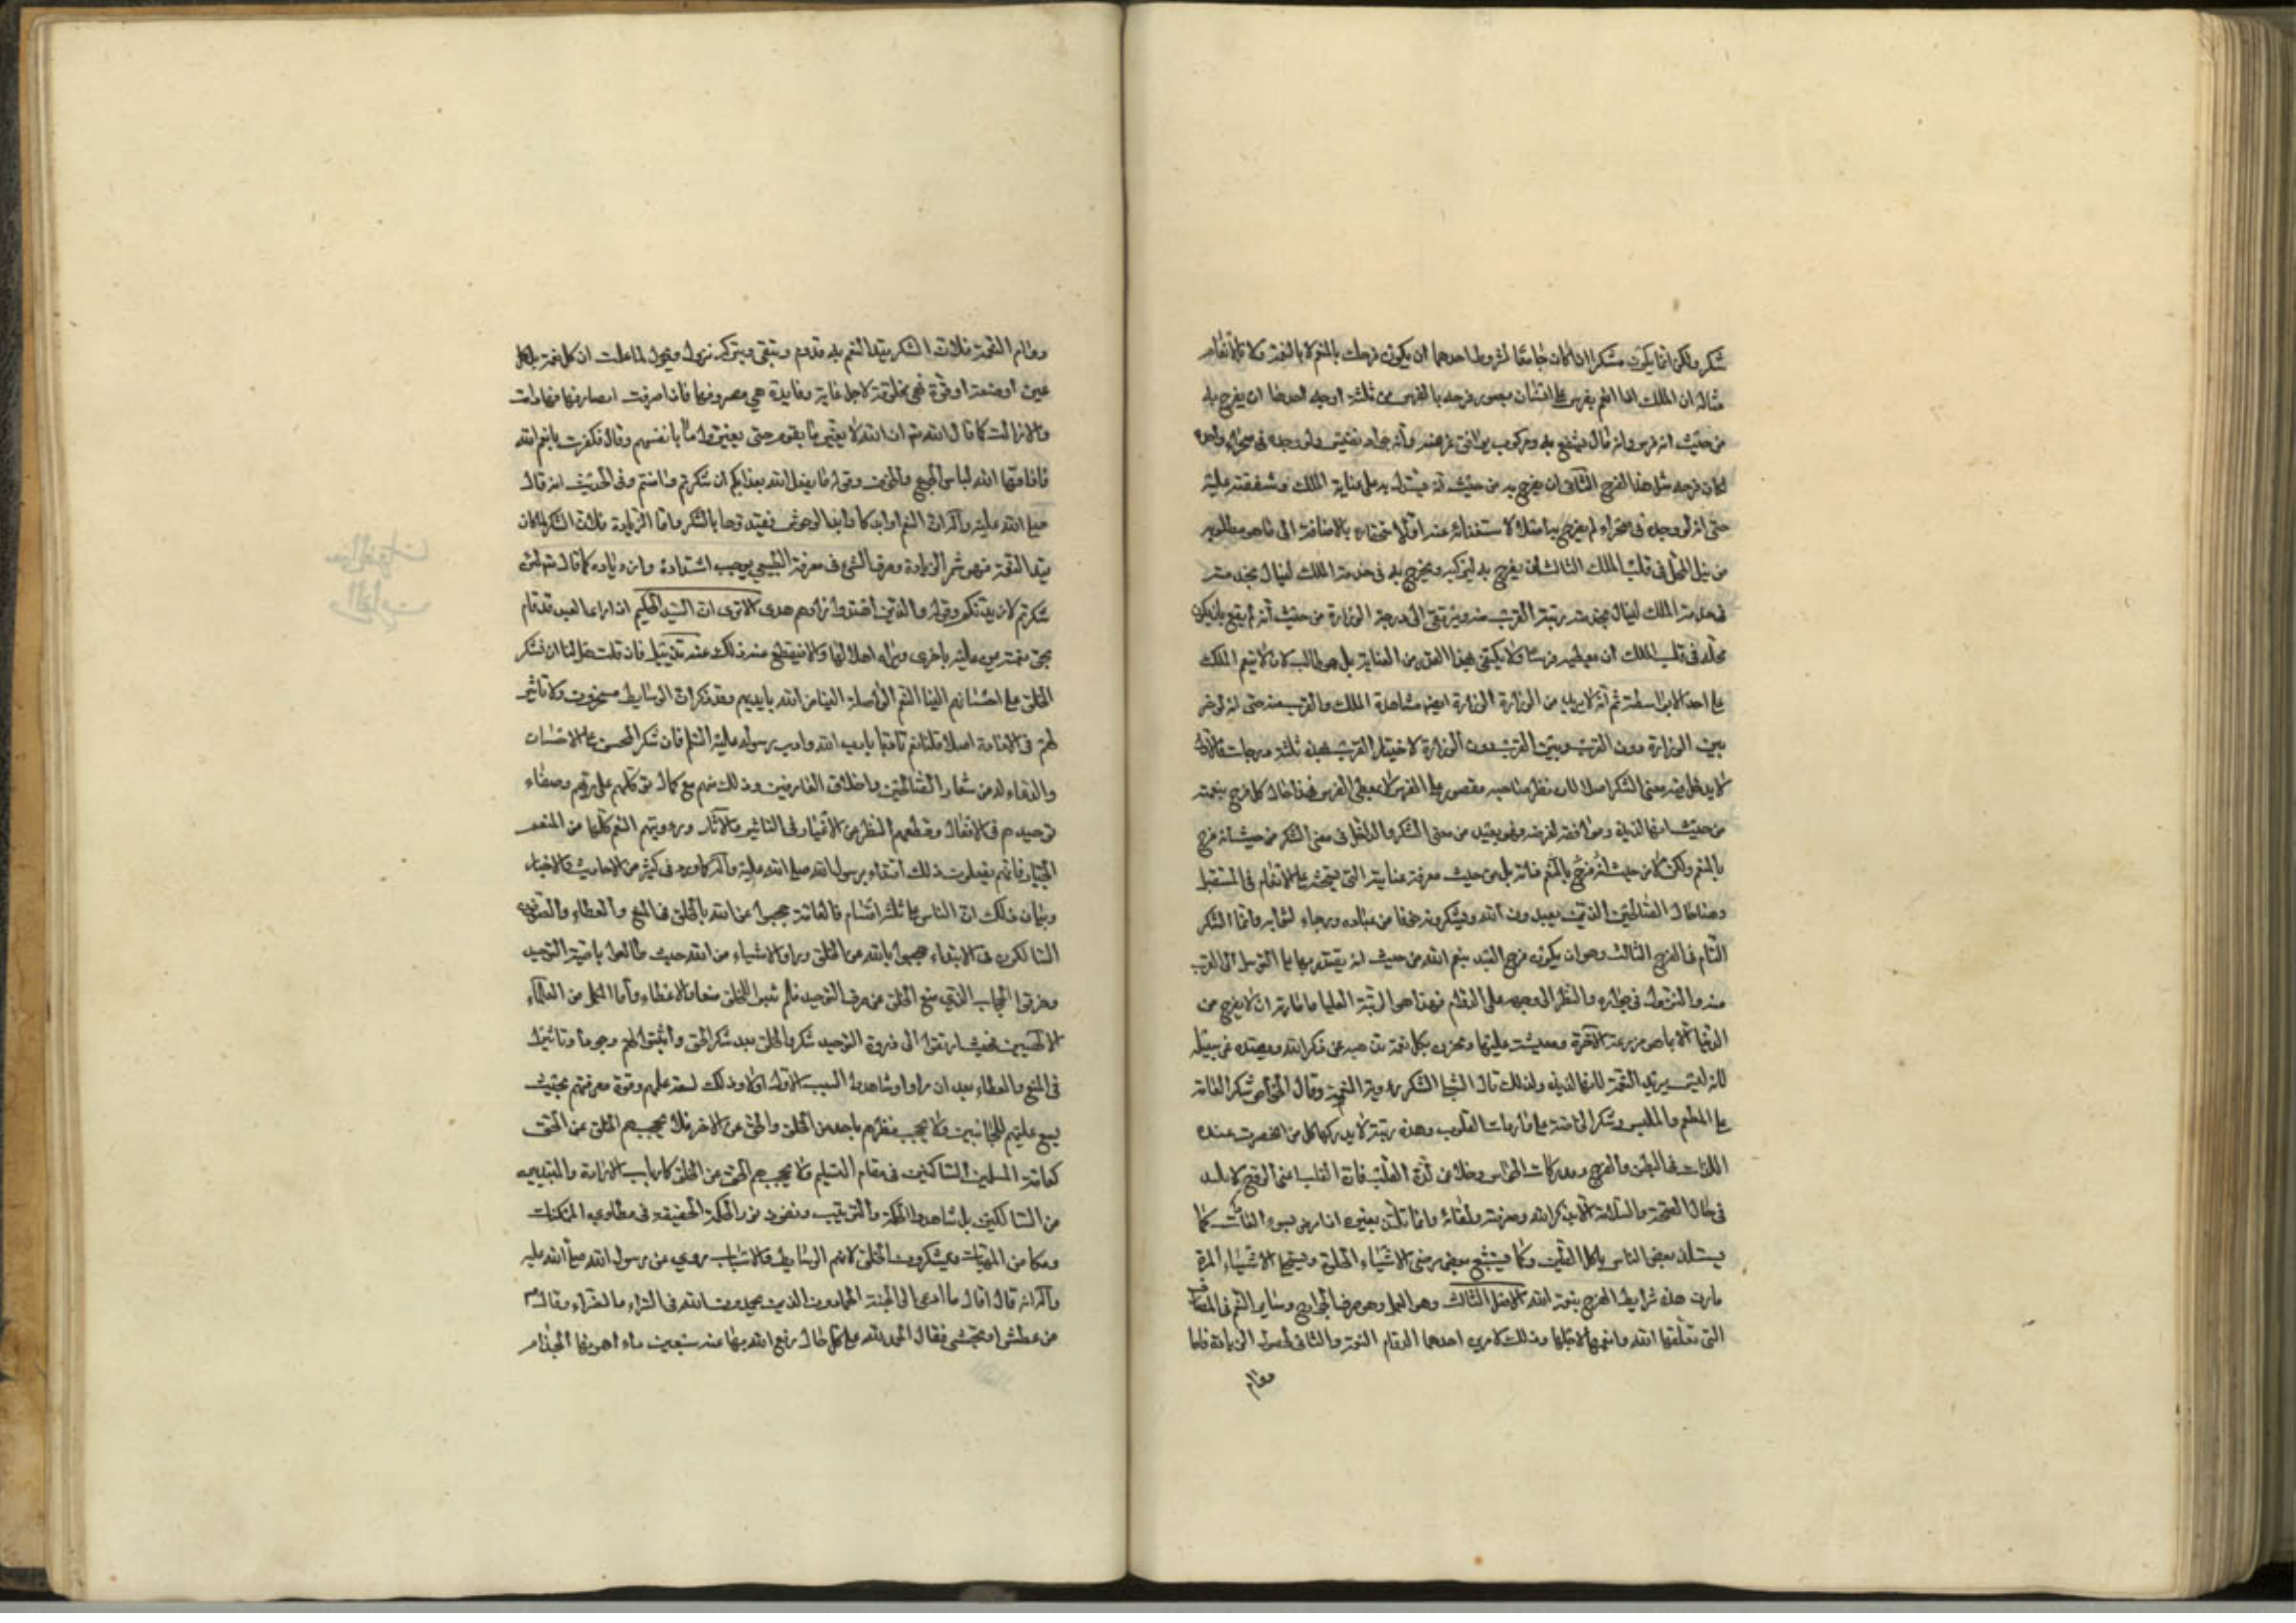 شكر ولكن انما يكون شكرا اذا كان جامعا لشروط احدهما ان يكون فرحك بالمنعم لا بالنعمة ولا بالانعام
مثاله ان الملك اذا انعم بفرس على انسان فرحه بالفرس من ثلثة اوجه احدها ان يفرح به
من حيث انه فرس وانه مال ينتفع به ومركوب يوافق غرضه وانه جواد نفيس ولو وجده في صحراء واخذه
لكان فرحه مثل هذا الفرح الثاني ان يفرح به من حيث انه يستدل به على عناية الملك وشفقته عليه
حتى انه لو وجده في صحراء لم يفرح به اصلا لاستغنائه عنه او لاستحقاره بالاضافة الى ما هو مطلوبه
من نيل المحل في قلب الملك الثالث ان يفرح به ليركبه ويخرج به في خدمة الملك لينال بخدمته
في خدمة الملك لينال بخدمته رتبة القرب منه ويرتقي الى درجة الوزارة من حيث انه لم يقنع بان يكون
محله في قلب الملك ان يعطيه فرسا ولا يكتفي بهذا القدر من العناية بل هو طالب لان لا ينعم الملك
على احد الا بواسطته ثم انه لا يريد من الوزارة الوزارة ايضا مشاهدة الملك والقرب منه حتى انه لو خير
بين الوزارة دون القرب وبين القرب دون الوزارة لاختار القرب فهذه ثلثة درجات فالاولى
لا يدخل فيه معنى الشكر اصلا لان نظر صاحبه مقصور على الفرس لا بمعطي الفرس هذا حال كل من فرح بنعمة
من حيث انها لذيذة وموافقة لغرضه وهو بعيد من معنى الشكر والداخل في معنى الشكر من حيث انه فرح
بالمنعم ولكن لا من حيث انه فرح بالمنعم ذاته بل من حيث معرفة عنايته التي تستحثه على الانعام في المستقبل
وهذا حال الصالحين الذين يعبدون الله ويشكرونه خوفا من عقابه ورجاء لثوابه وانما الشكر
التام في الفرح الثالث وهو ان يكون فرح العبد بنعم الله من حيث انه يقتدر بها على التوصل الى القرب
منه والنزول في جواره والنظر الى وجهه على الدوام فهذا هو الرتبة العليا وامارته ان لا يفرح من
الدنيا الا بما هو مزرعة الآخرة ومعينة عليها ويحزن بكل نعمة تلهيه عن ذكر الله وتصده عن سبيله
لانه ليس يريد النعمة لانها لذيذة ولذلك قال الشبلي الشكر رؤية المنعم وقال الخواص شكر العامة
على المطعم والملبس وشكر الخاصة على واردات القلوب وهذه رتبة لا يدركها كل من انحصرت عنده
اللذات في البطن والفرج ومدركات الحواس وخلا من لذة القلب فان القلب لا يلتذ
في حال الصحة والسلامة الا بذكر الله ومعرفته ولقائه وانما يلتذ بغيره اذا مرض بسوء العادات كما
يستلذ بعض الناس باكل الطين وكما يستبشع بعض المرضى الاشياء الحلوة ويستحلي الاشياء المرة
فان هذه شرايط الفرح بنعمة الله الاصل الثالث وهو العمل وهو صرف الجوارح وساير النعم في المصارف
التي خلقها الله وانعمها لاجلها وذلك لامرين احدهما لدوام النعمة والثاني لحصول الزيادة فاما
دوام
دوام النعمة فلان الشكر قيد النعم به تدوم وتبقى وبتركه تزول وتحول لما علمت ان كل نعمة بل كل
عين او صنعة او قوة فهي مخلوقة لاجل غاية وفايدة هي مصروفها فاذا صرفت في مصارفها فهي دامت
والا زالت كما قال الله تعالى ان الله لا يغير ما بقوم حتى يغيروا ما بانفسهم وقال فكفرت بانعم الله
فاذاقها الله لباس الجوع والخوف وقوله ما يفعل الله بعذابكم ان شكرتم وامنتم وفي الحديث انه قال
صلى الله عليه وآله ان للنعم اوابد كاوابد الوحوش فقيدوها بالشكر واما الزيادة فلان الشكر لما كان
قيد النعمة فهو ثمر الزيادة وصرف الشيء في معرفة الطبيعي يوجب اشتداده وازدياده كما قال تعالى لئن
شكرتم لازيدنكم وقوله والذين اهتدوا زادهم هدى الا ترى ان السيد الحكيم اذا راى العبد قد قام
بحق نعمته من عليه باخرى ويراه اهلا لها والا فيقطع عنه ذلك تذييل فان قلت هل لنا ان نشكر
الخلق على احسانهم الينا النعم الواصلة الينا من الله بايديهم وقد ذكرت ان الوسايط مسخرون ولا تاثير
لهم في الافادة اصلا قلنا نعم تادبا باداب الله وادب رسوله عليه السلم فان شكر المحسن على الاحسان
والدعاء له من شعار الصالحين واخلاق العارفين وذلك منهم مع كمال توكلهم على ربهم وصفاء
توحيدهم في الافعال وقطعهم النظر عن الاغيار في التاثير والآثار ورؤيتهم النعم كلها من المنعم
الجبار فانهم يفعلون ذلك اقتداء برسول الله صلى الله عليه وآله كما ورد في كثير من الاحاديث والاخبار
وبيان ذلك ان الناس على ثلثة اقسام فالعامة حجبوا عن الله بالخلق في المنع والعطاء والصوفي
السالكون في الابتداء حجبوا بالله عن الخلق وراوا الاشياء من الله حيث طالعوا ناصية التوحيد
وخرقوا الحجاب الذي منع الخلق عن صرف التوحيد فلم يثبتوا للخلق منعا ولا عطاء واما الكمل من العلماء
الالهيين فحيث ارتقوا الى ذروة التوحيد شكروا الخلق بعد شكر الحق واثبتوا لهم وجودا وتاثيرا
في المنع والعطاء بعد ان راوا وشاهدوا السبب الاول اولا وذلك لسعة علمهم وقوة معرفتهم بحيث
يسع علمهم للجانبين ولا يحجب نظرهم باحد من الخلق والحق عن الاخر فلا يحجبهم الخلق عن الحق
كعامة المسلمين الساكنين في مقام التسليم ولا يحجبهم الحق عن الخلق كارباب الارادة والمبتديين
من السالكين بل شاهدوا الحكمة والترتيب ونفوذ نور الحكمة الحقيقية في مطاوي الممكنات
ومكامن المهيات ويشكرون الخلق لانهم الوسايط والاسباب روي عن رسول الله صلى الله عليه
وآله انه قال اول ما ادعى الى الجنة الحمادون الذين يحمدون الله في السراء والضراء وقال
من عطش او تجشى فقال الحمد لله على كل حال رفع الله بها عنه سبعين داء اهونها الجذام